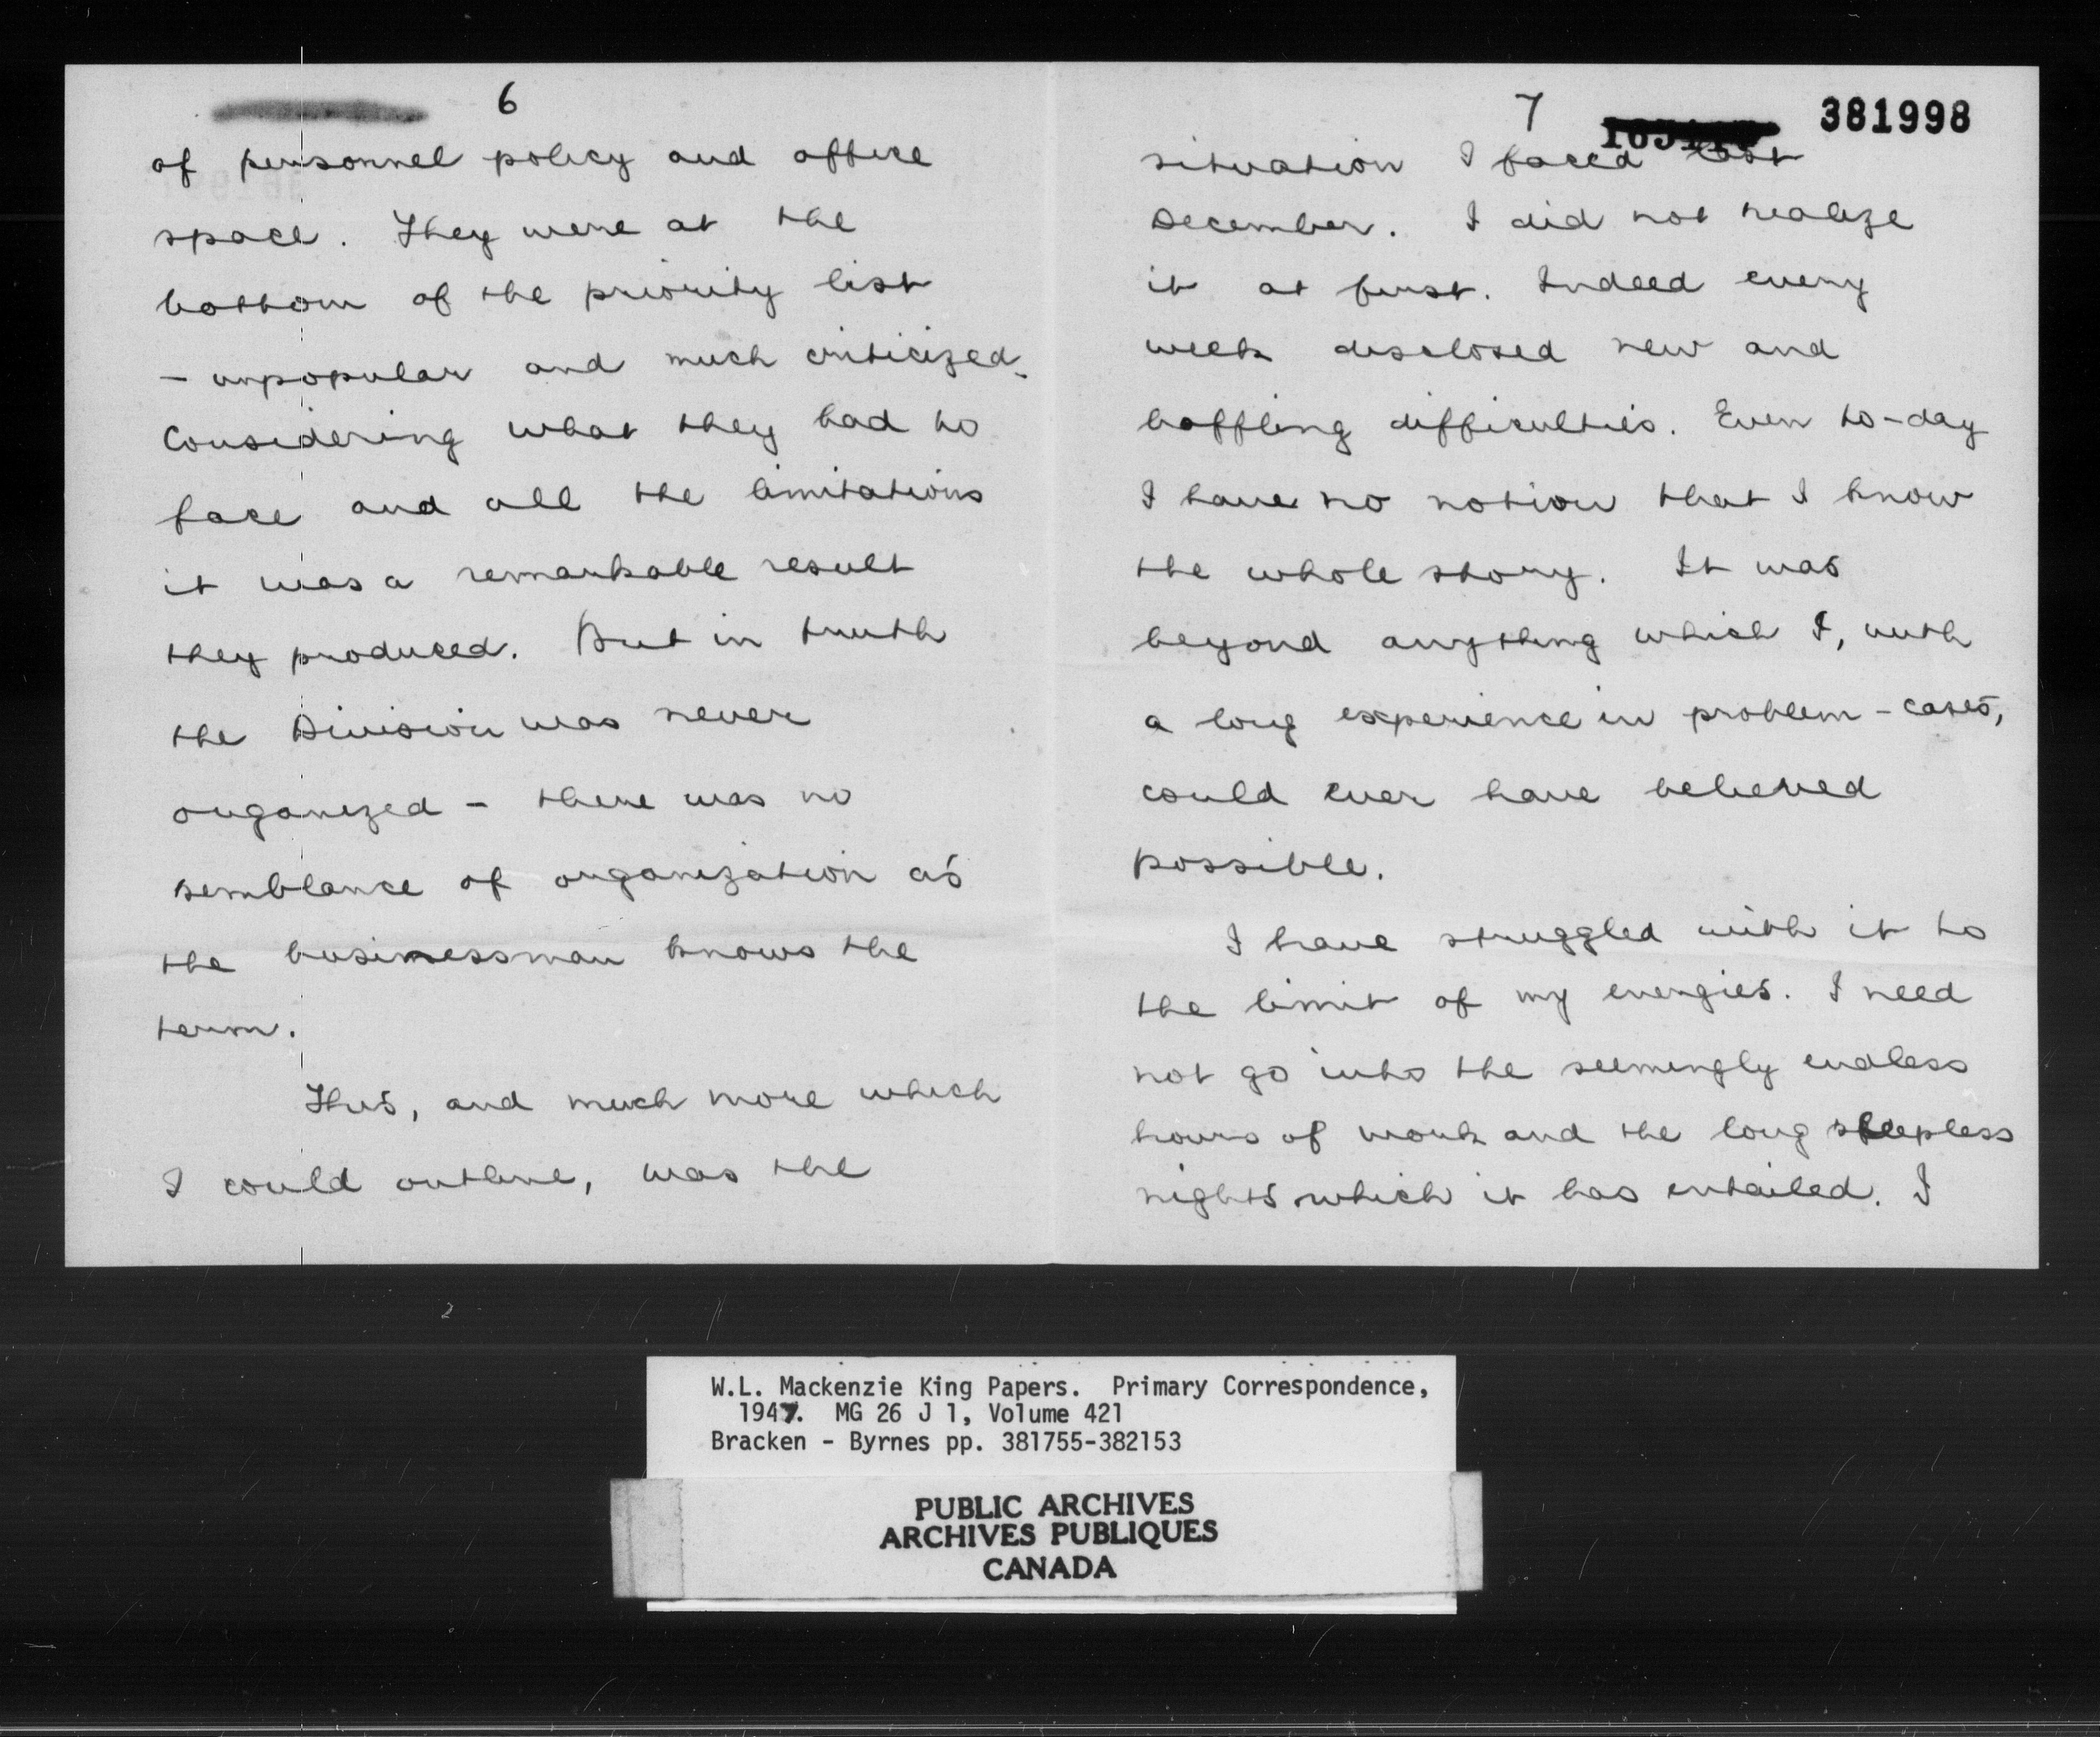 6
of personnel policy and office
space. They were at the
bottom of the priority list
- unpopular and much criticized.
Considering what they had to
face and all the limitations
it was a remarkable result
they produced. But in truth
the Division was never
organized - there was no
semblance of organization as
the businessman knows the
term.
This, and much more which
I could outline, was the
7
381998
situation I faced last
December. I did not realize
it at first. Indeed every
week disclosed new and
baffling difficulties. Even to-day
I have no notion that I know
the whole story. It was
beyond anything which I, with
a long experience in problem-cases,
could ever have believed
possible.
I have struggled with it to
the limit of my energies. I need
not go into the seemingly endless
hours of work and the long sleepless
nights which it has entailed. I
W.L. Mackenzie King Papers. Primary Correspondence,
1947. MG 26 J 1, Volume 421
Bracken - Byrnes pp. 381755-382153
PUBLIC ARCHIVES
ARCHIVES PUBLIQUES
CANADA